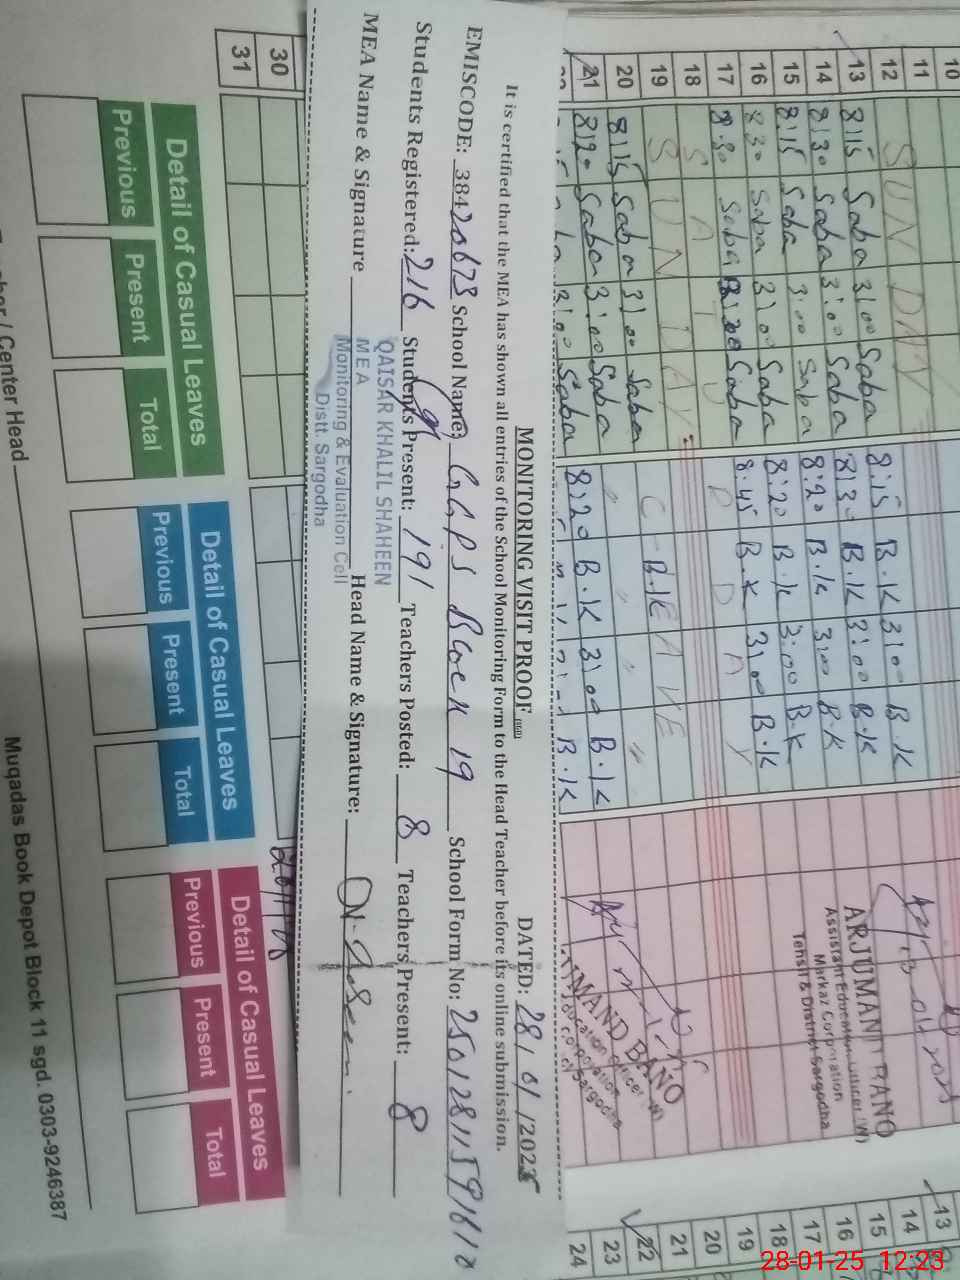 MONITORING VISIT PROOF (SGD)
DATED: 28/01/2025
It is certified that the MEA has shown all entries of the School Monitoring Form to the Head Teacher before its online submission.
EMISCODE: 38420673 School Name: G.G.P.S Block 19 School Form No:
Students Registered: 216 Students Present: 191 Teachers Posted: 8 Teachers Present: 8
MEA Name & Signature Head Name & Signature:
QAISAR KHALIL SHAHEEN
MEA
Monitoring & Evaluation Cell
Distt. Sargodha
10
11
12 SUNDAY
13 8:15 Saba 3:00 Saba 8:15 B.K 3:00 B.K
14 8:30 Saba 3:00 Saba 8:30 B.K 3:00 B.K
15 8:15 Saba 3:00 Saba 8:20 B.K 3:00 B.K
16 8:30 Saba 3:00 Saba 8:20 B.K 3:00 B.K
17 8:30 Saba Saba 8:45 B.K 3:00 B.K
18
19 SUNDAY
20 8:15 Saba 3:00 Saba C-LEAVE
21 8:20 Saba 3:00 Saba 8:20 B.K 3:00 B.K
3:00 Saba B.K
30
31
ARJUMAND BANO
Assistant Education Officer (W)
Markaz Corporation
Tehsil & District Sargodha
13
14
15
16
17
18
19
20
21
22
23
24
Detail of Casual Leaves
Previous Present Total
Detail of Casual Leaves
Previous Present Total
Detail of Casual Leaves
Previous Present Total
/ Center Head
Muqadas Book Depot Block 11 sgd. 0303-9246387
28-01-25 12:23